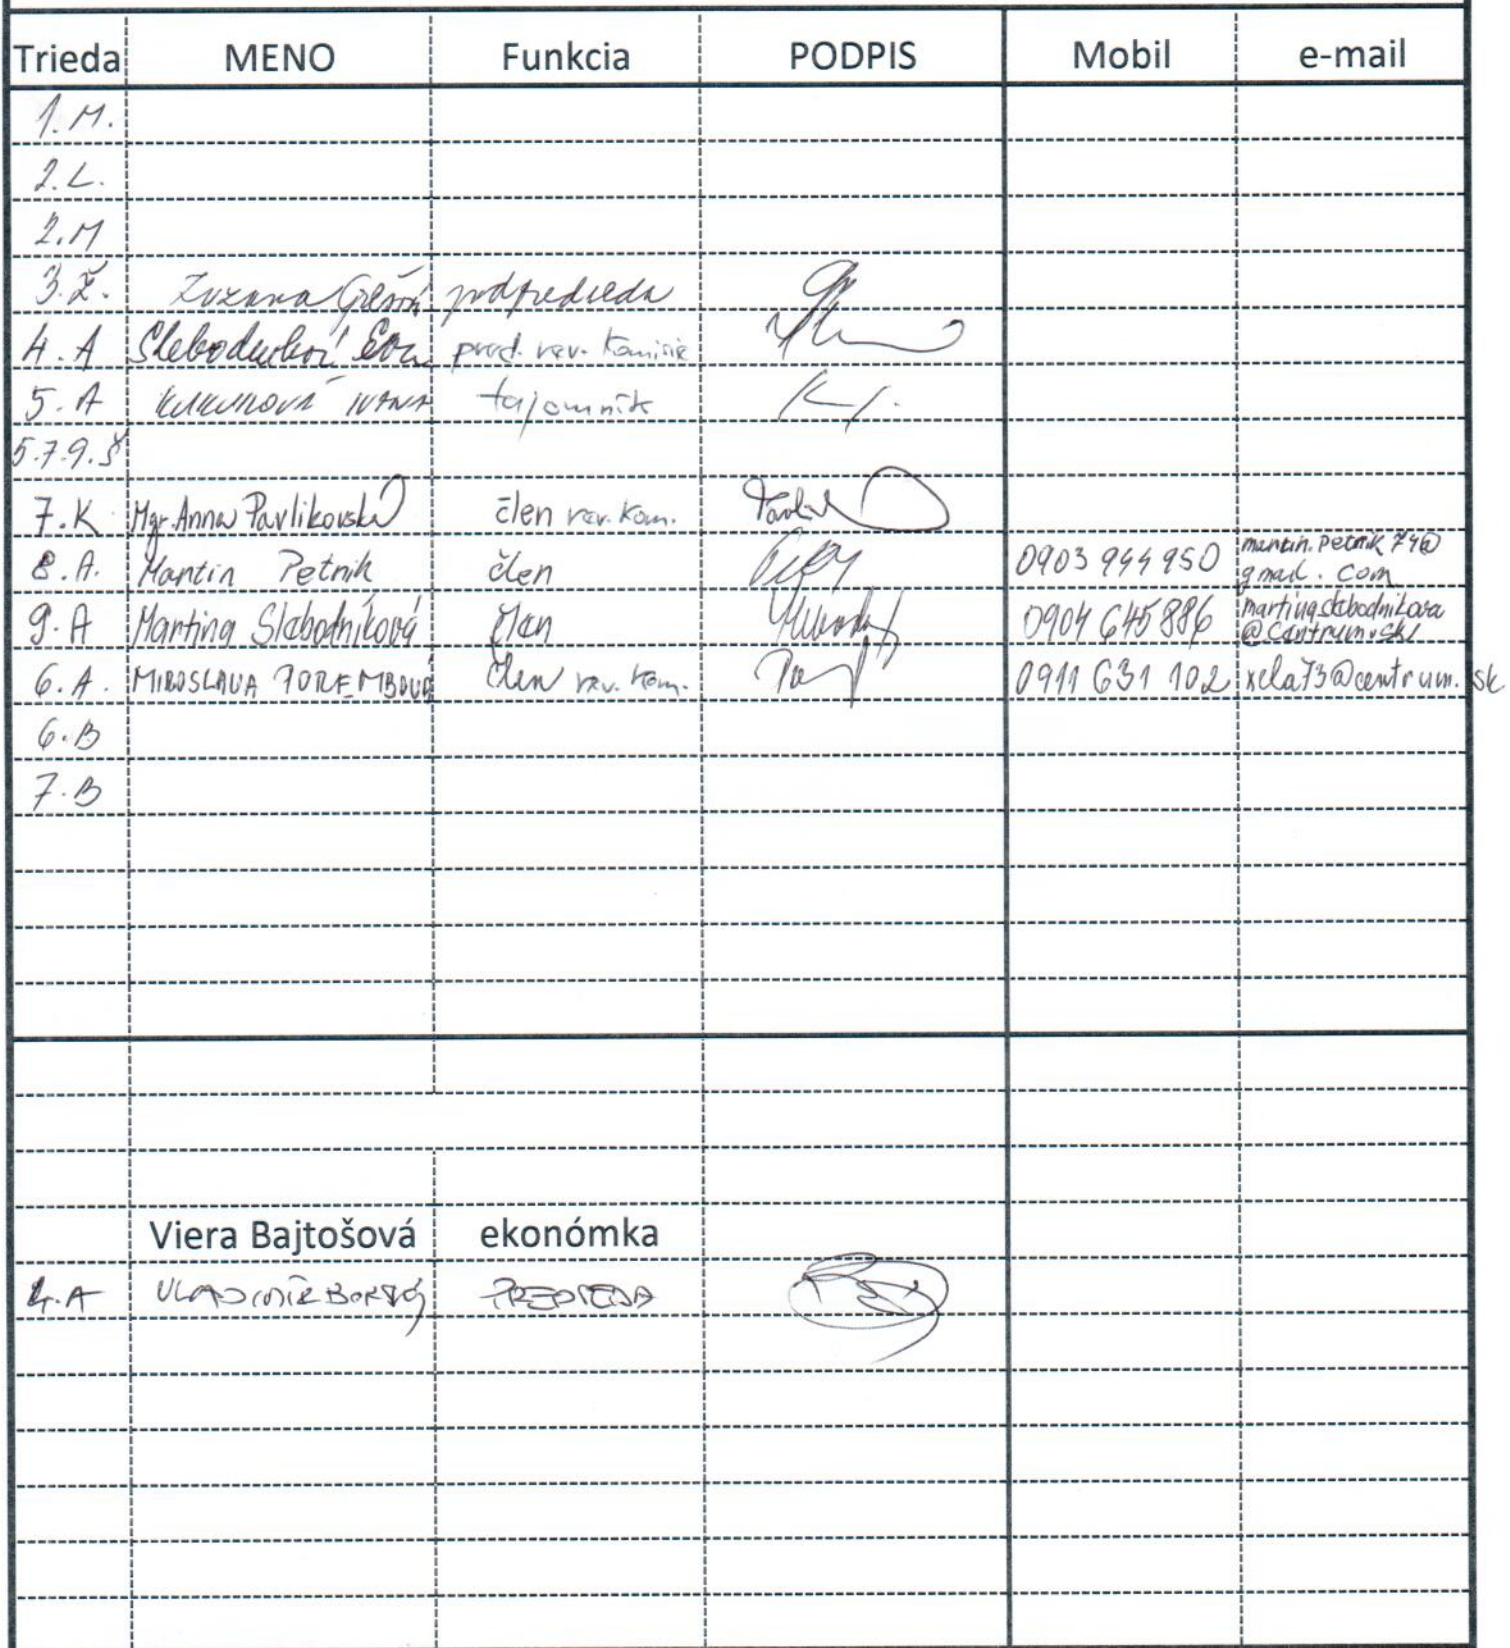 Trieda MENO Funkcia PODPIS Mobil e-mail
1.M.
2.L.
2.M
3.Ž. Zuzana podpredseda
4.A pred. rev. komisie
5.A IVANA tajomník
5.7.9.Š
7.K Mgr. Anna Pavlikovská člen rev. kom.
8.A. Martin Petnik člen 0903 944 950 martin.petnik74@
gmail.com
9.A Martina Slabodníková člen 0904 645 886 martinaslabodnikova
@centrum.sk
6.A. MIROSLAVA POREMBOVÁ člen rev. kom. 0911 631 102 xela73@centrum.sk
6.B
7.B
Viera Bajtošová ekonómka
4.A VLADIMÍR PREDSEDA